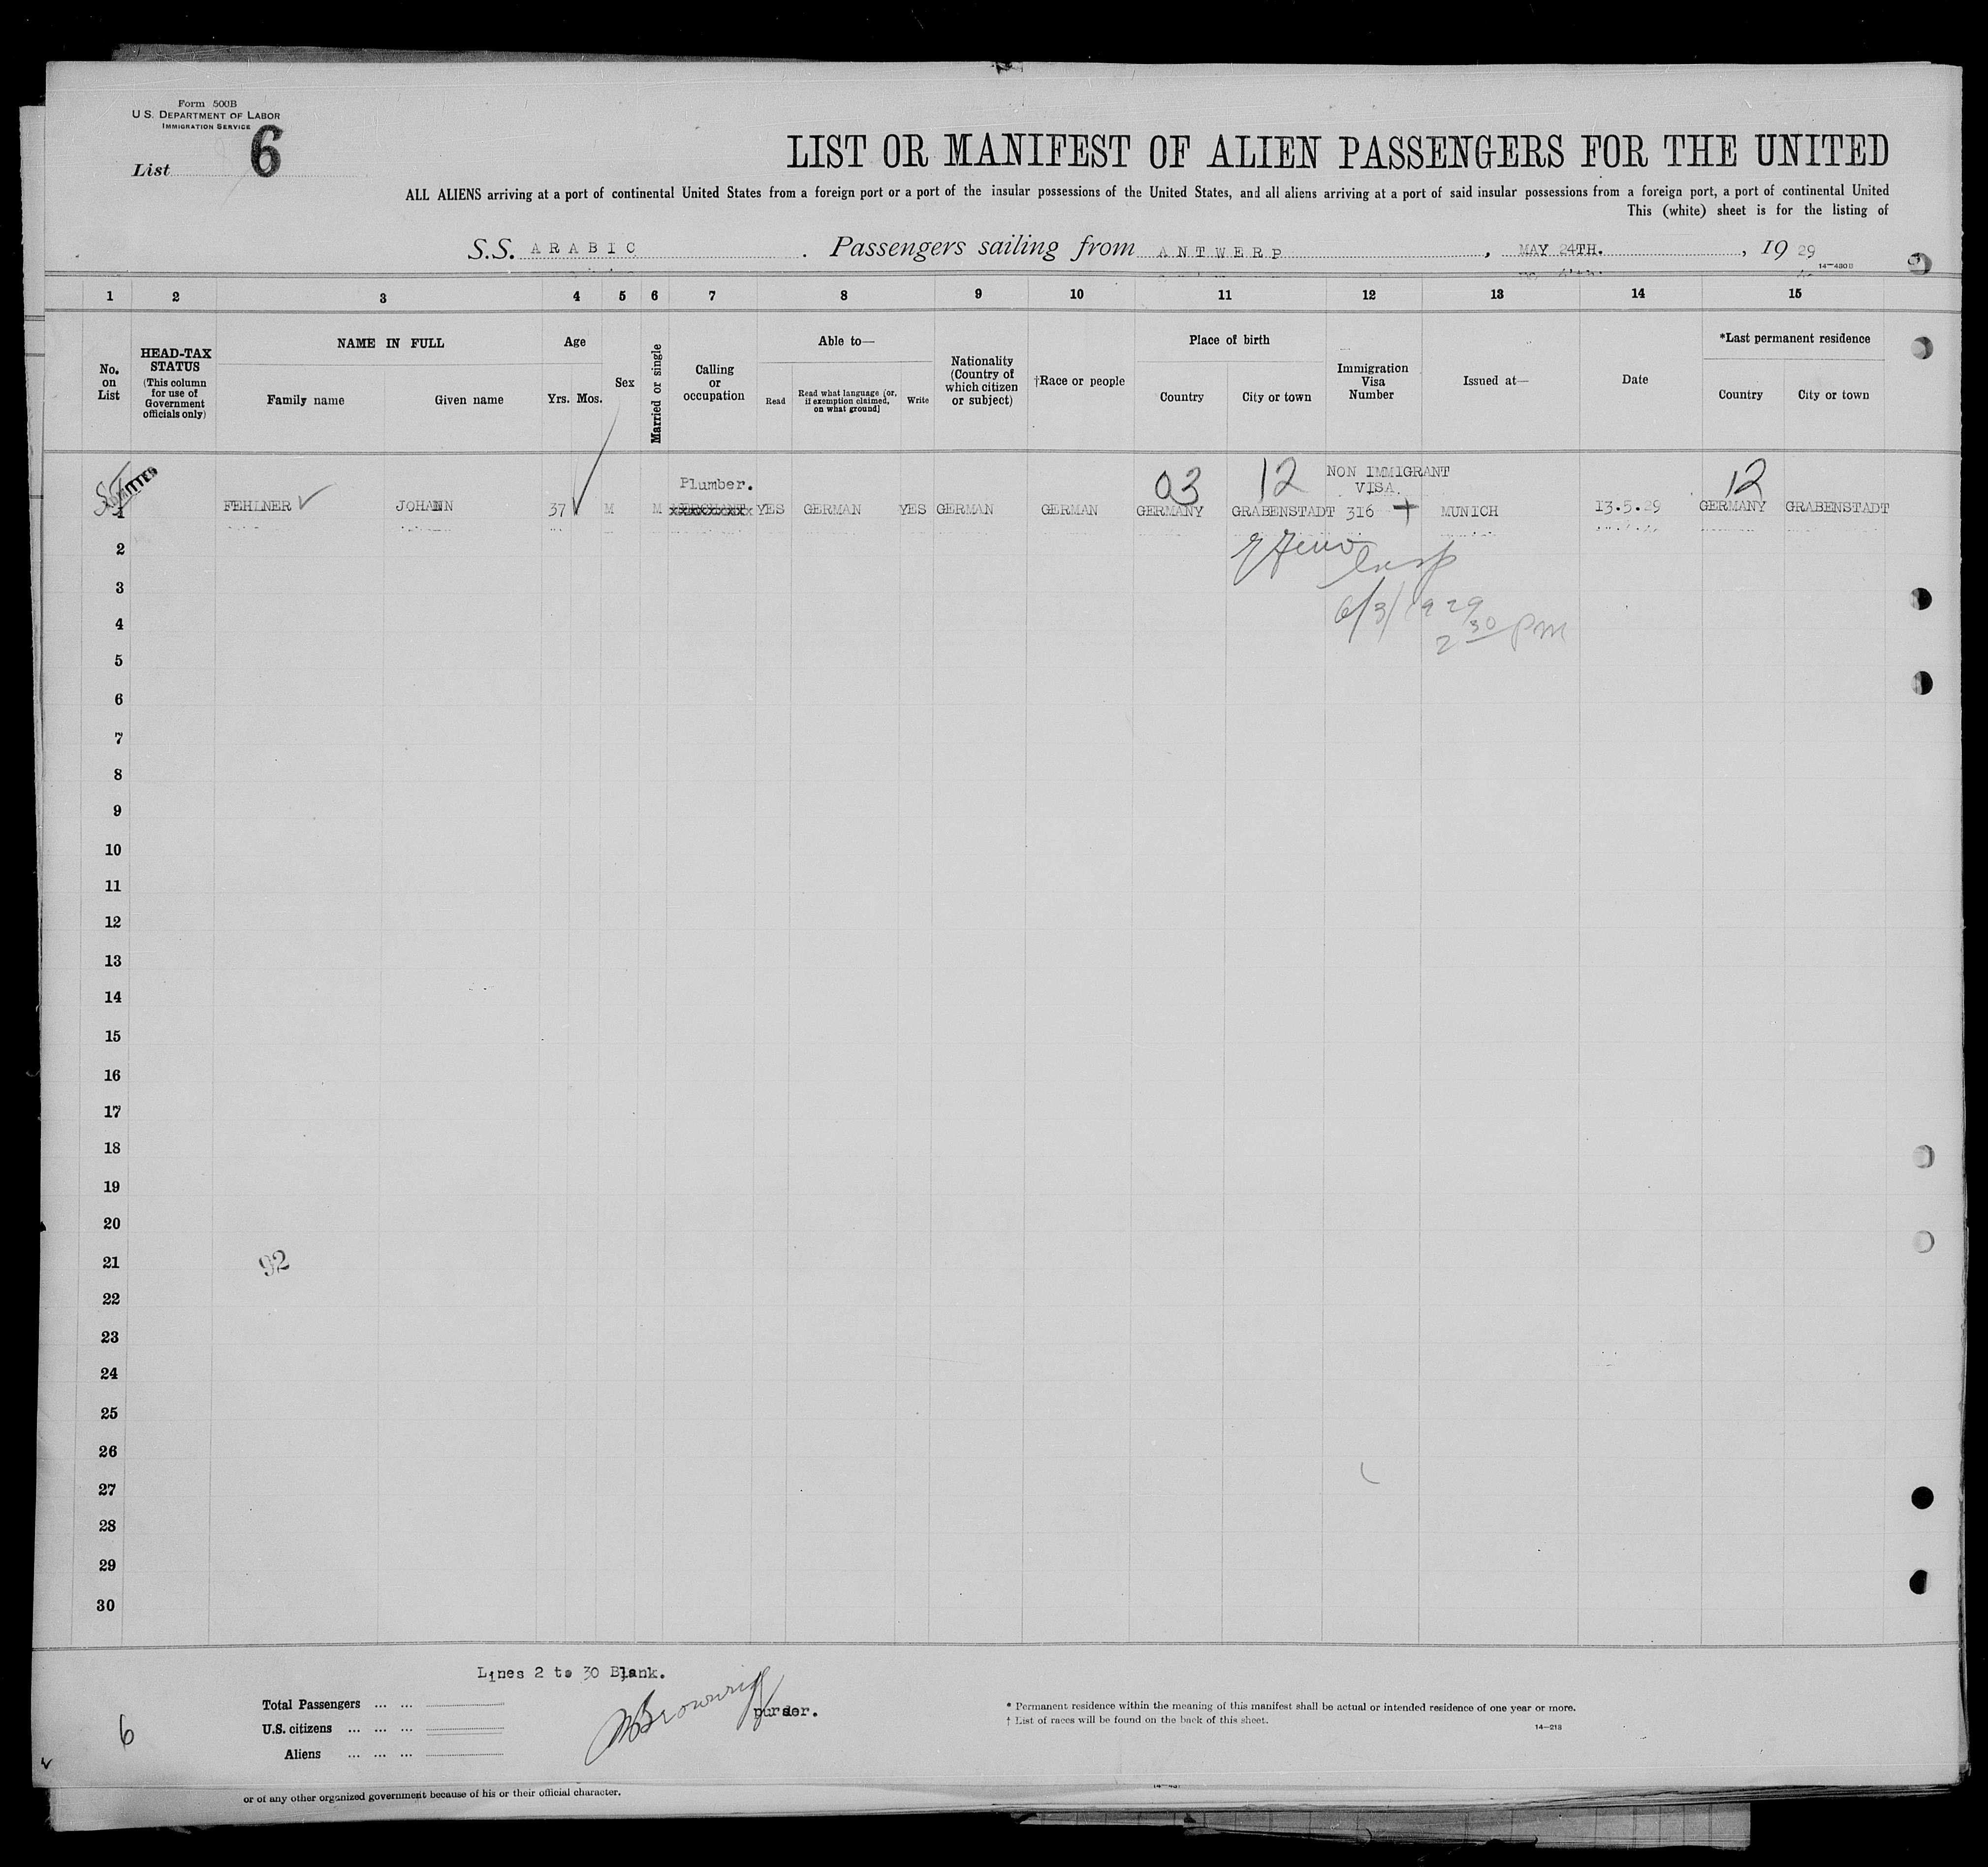 Form 500B
U.S. DEPARTMENT OF LABOR
IMMIGRATION SERVICE
List 6
LIST OR MANIFEST OF ALIEN PASSENGERS FOR THE UNITED
ALL ALIENS arriving at a port of continental United States from a foreign port or a port of the insular possessions of the United States, and all aliens arriving at a port of said insular possessions from a foreign port, a port of continental United
This (white) sheet is for the listing of
S.S. ARABIC. Passengers sailing from ANTWERP, MAY 24TH., 1929
14—480B
1 2 3 4 5 6 7 8 9 10 11 12 13 14 15
No. on List
HEAD-TAX STATUS (This column for use of Government officials only)
NAME IN FULL
Family name Given name
Age
Yrs. Mos.
Sex
Married or single
Calling or occupation
Able to—
Read
Read what language [or, if exemption claimed, on what ground]
Write
Nationality (Country of which citizen or subject)
†Race or people
Place of birth
Country City or town
Immigration Visa Number
Issued at—
Date
*Last permanent residence
Country City or town
Plumber. 03 12 NON IMMIGRANT VISA. 12
1 FEHLNER JOHANN 37 M M YES GERMAN YES GERMAN GERMAN GERMANY GRABENSTADT 316 + MUNICH 13.5.29 GERMANY GRABENSTADT
2
Insp
3
6/3/1929
4
2 30 PM
5
6
7
8
9
10
11
12
13
14
15
16
17
18
19
20
21
92
22
23
24
25
26
27
28
29
30
Lines 2 to 30 Blank.
Total Passengers ... ...
U.S. citizens ... ... ...
Aliens ... ... ...
purser.
* Permanent residence within the meaning of this manifest shall be actual or intended residence of one year or more.
† List of races will be found on the back of this sheet.
14—218
6
or of any other organized government because of his or their official character.